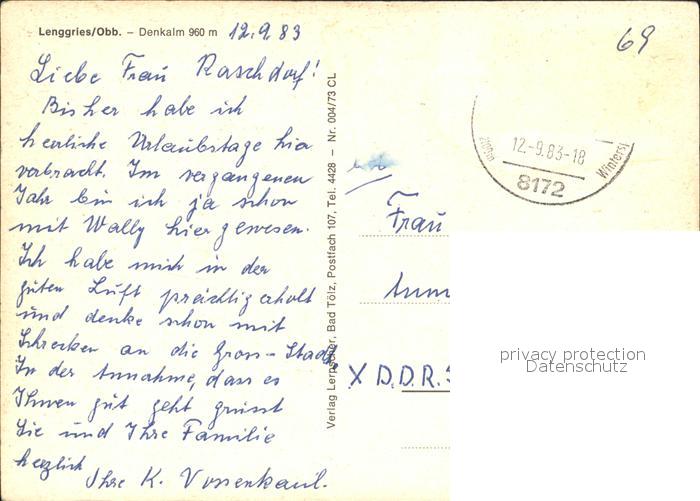 Lenggries/Obb. – Denkalm 960 m 12.9.83
69
Liebe Frau Raschdorf!
Bisher habe ich
herrliche Urlaubstage hier
verbracht. Im vergangenen
Jahr bin ich ja schon
mit Wally hier gewesen.
Ich habe mich in der
guten Luft prächtig erholt
und denke schon mit
Schrecken an die Gross-Stadt,
In der Annahme, dass es
Ihnen gut geht grüsst
Sie und Ihre Familie
herzlich
Ihre K.
Verlag Lerpscher, Bad Tölz, Postfach 107, Tel. 4428 – Nr. 004/73 CL
12.-9.83-18
8172
Winters
Frau
X D.D.R.
privacy protection
Datenschutz